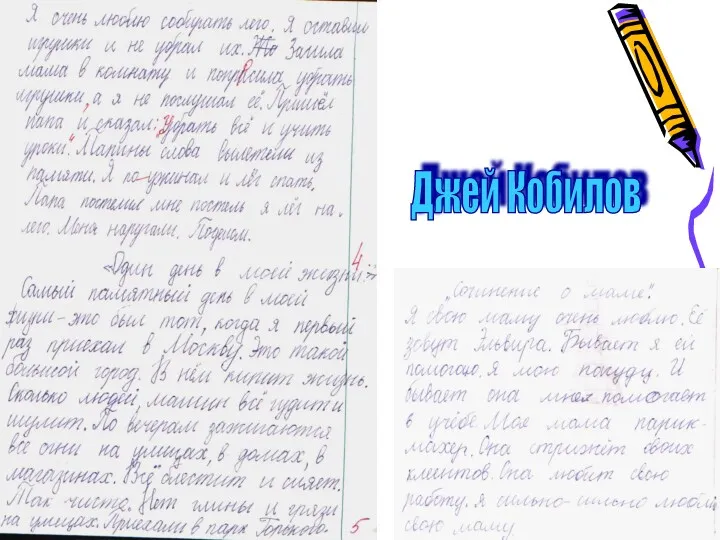 Я очень люблю собирать лего. Я оставил
игрушки и не убрал их. Зашла
мама в комнату и попросила убрать
игрушки, а я не послушал её. Пришёл
папа и сказал: "Убрать всё и учить
уроки." Мамины слова вылетели из
памяти. Я поужинал и лёг спать.
Папа постелил мне постель я лёг на
лего. Меня наругали. Поделом.
4
Один день в моей жизни.
Самый памятный день в моей
жизни - это был тот, когда я первый
раз приехал в Москву. Это такой
большой город. В нём кипит жизнь.
Сколько людей, машин всё гудит и
шумит. По вечерам зажигаются
все огни на улицах, в домах, в
магазинах. Всё блестит и сияет.
Так чисто. Нет глины и грязи
на улицах. Приехали в парк Горького.
5
Джей Кобилов
"Сочинение о маме".
Я свою маму очень люблю. Её
зовут Эльвира. Бывает я ей
помогаю, я мою посуду. И
бывает она мне помогает
в учёбе. Моя мама парик-
махер. Она стрижёт своих
клеентов. Она любит свою
работу. Я сильно-сильно люблю
свою маму.